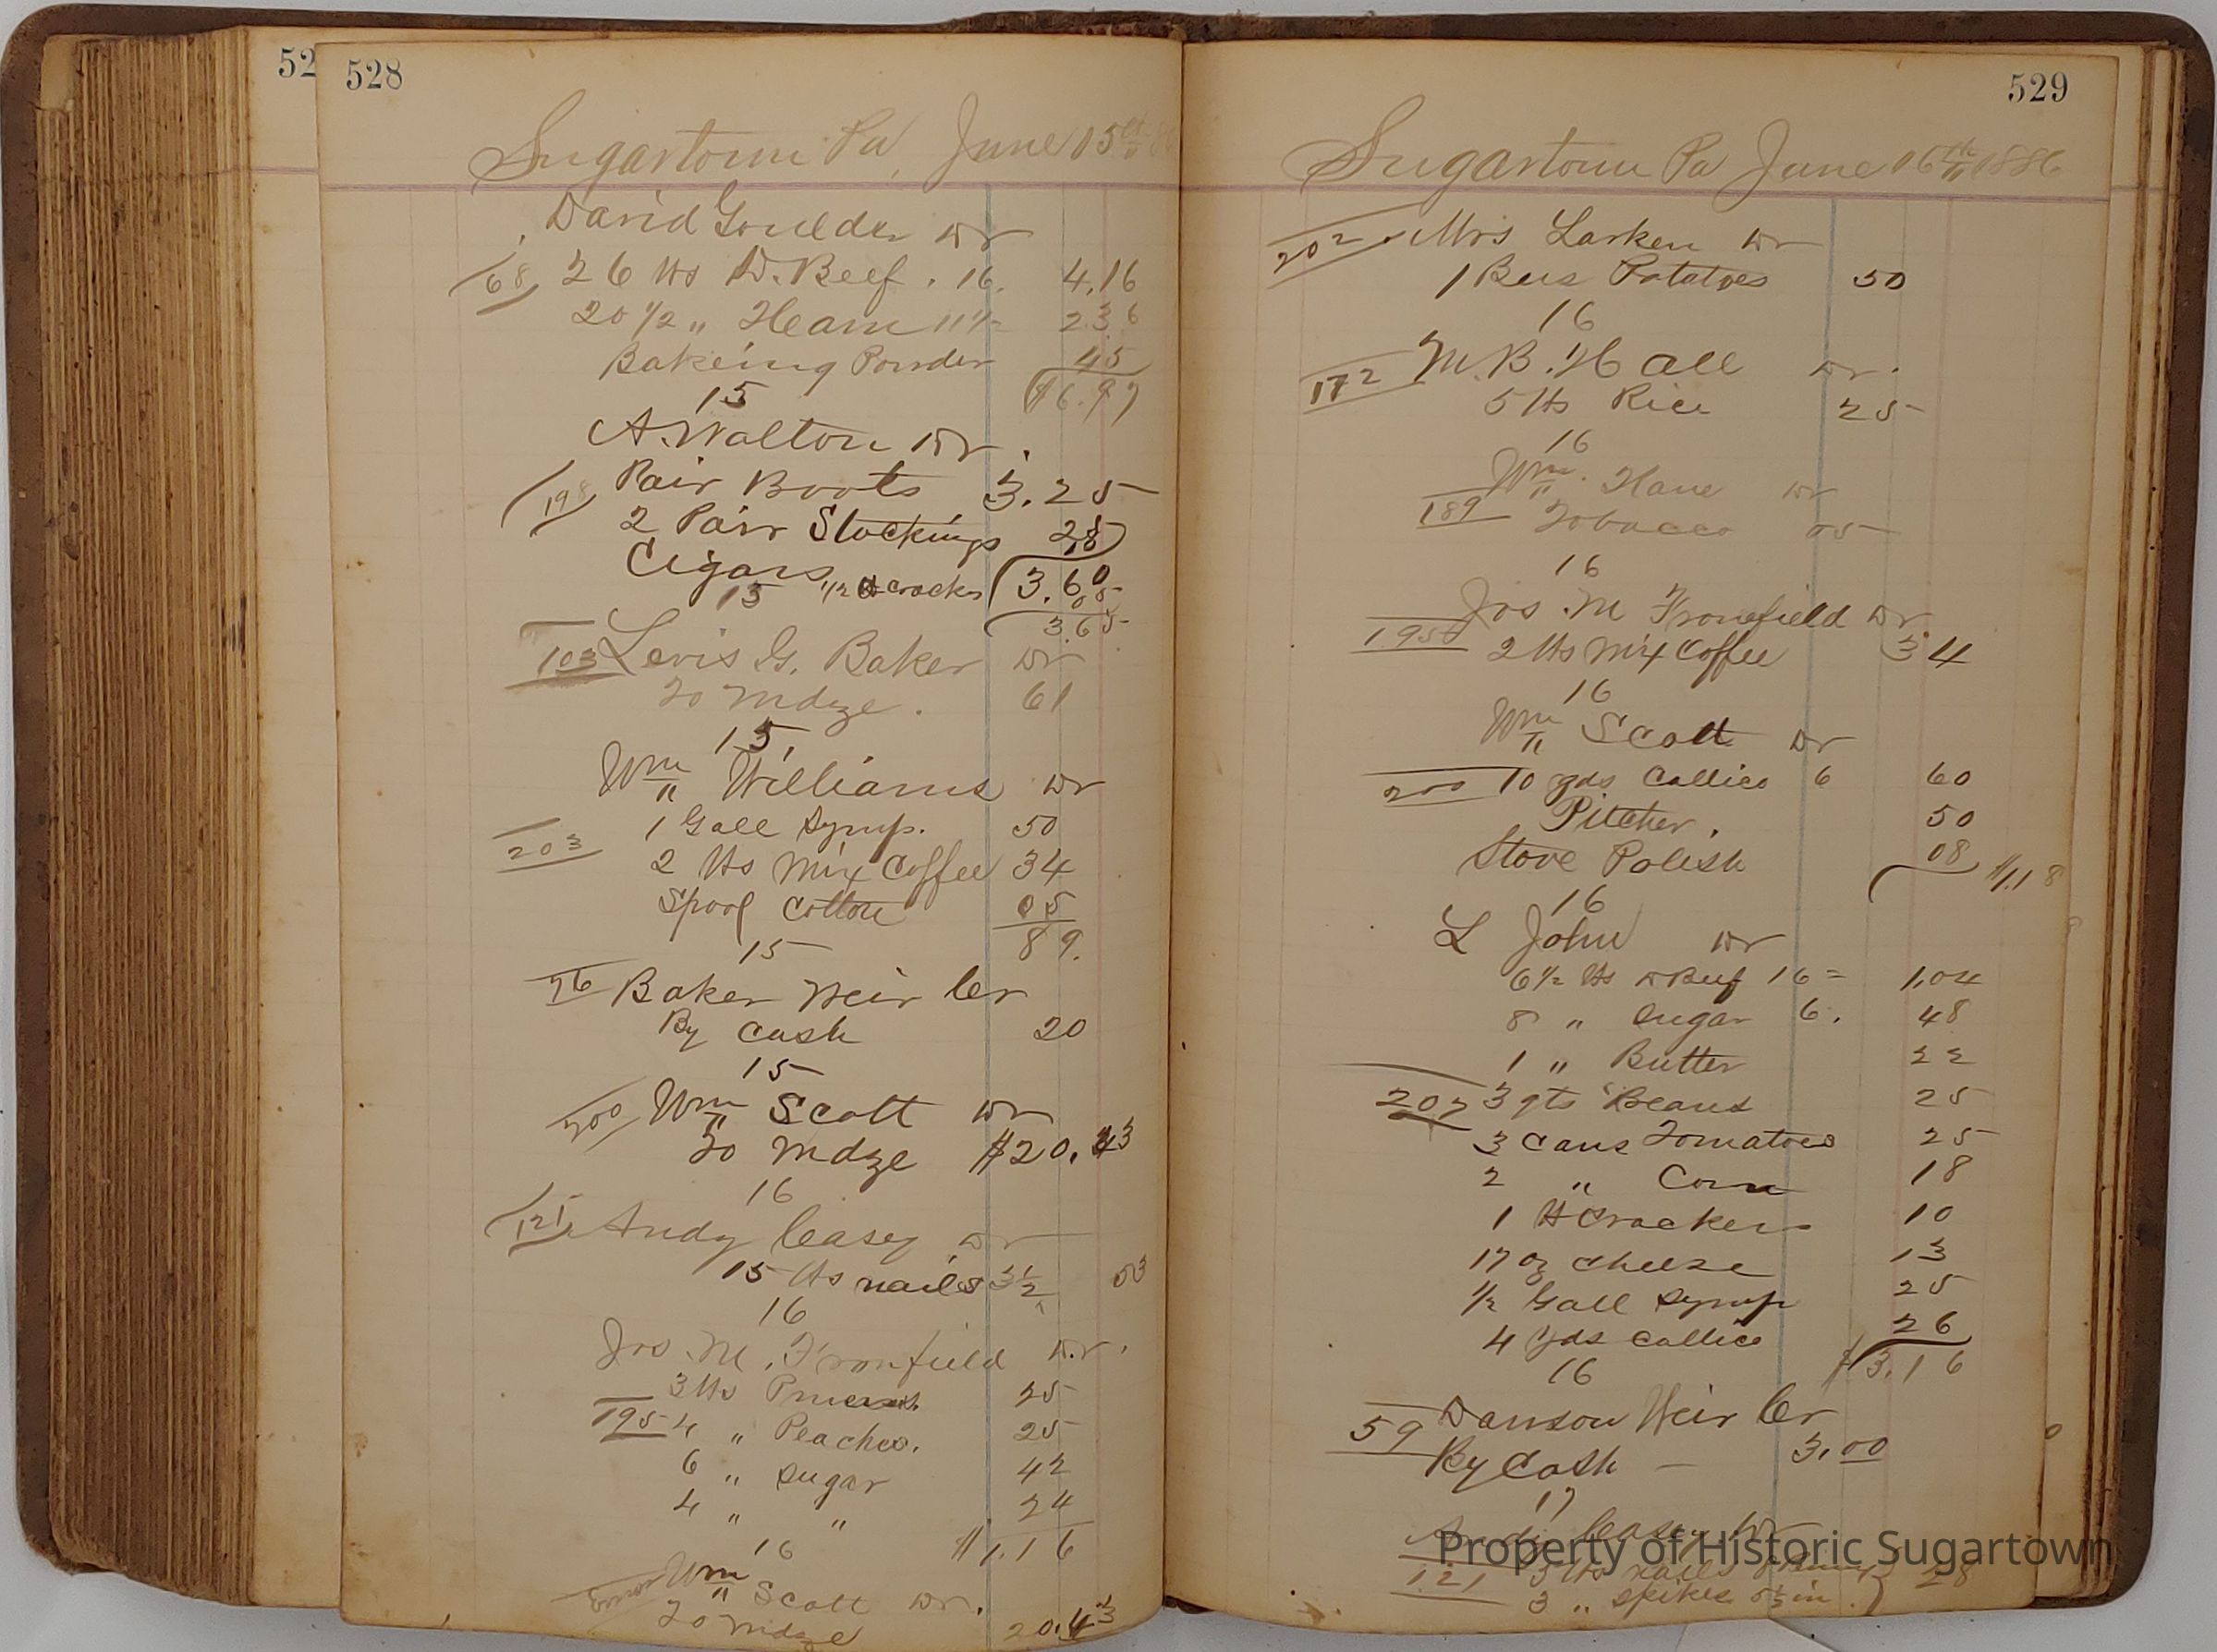 52
528
Sugartown Pa, June 15th 86
David Goulder Dr
168 26 lbs D. Beef . 16. 4.16
20 1/2 " Ham 11 1/2 2.36
Bakeing Powder 45
$6.97
15
A. Walton Dr.
198 Pair Boots 3.25
2 Pair Stockings
Cigars 1/2 lb crackers 3.60
05
15 3.65
103 Levis G. Baker Dr
To Mdze. 61
15,
Wm Williams Dr
1 Gall Syrup. 50
203 2 lbs Mix Coffee 34
Spool Cotton 05
89.
15
76 Baker Weir Cr
By Cash 20
15
200 Wm Scott Dr
To Mdze $20.43
16
121 Andy Casey Dr
15 lbs nails 3 1/2 53
16
Jos. M. Fronfield Dr.
3 lbs Prunes. 25
195 4 " Peaches. 25
6 " Sugar 42
4 " " 24
16 $1.16
Error Wm Scott Dr.
To Mdze 20.43
529
Sugartown Pa June 16th 1886
202 Mrs Larken Dr
1 Bus Potatoes 50
16
172 M. B. Hall Dr.
5 lbs Rice 25
16
Wm. Kane Dr
189 Tobacco 05
16
Jos. M Fronefield Dr
195 2 lbs Mix Coffee 34
16
Wm Scott Dr
200 10 yds Callico 6 60
Pitcher. 50
Stove Polish 08 $1.18
16
L John Dr
6 1/2 lbs D Beef 16 = 1.04
8 " Sugar 6. 48
1 " Butter 22
207 3 qts Beans 25
3 Cans Tomatoes 25
2 " Corn 18
1 lb Crackers 10
17 oz cheese 13
1/2 Gall Syrup 25
4 yds callico 26
16 $3.16
59 Dawson Weir Cr
By Cash — 3.00
17
Andy Casey Dr
121 3 lbs nails 28
3 " spikes 5 1/2 in.
Property of Historic Sugartown